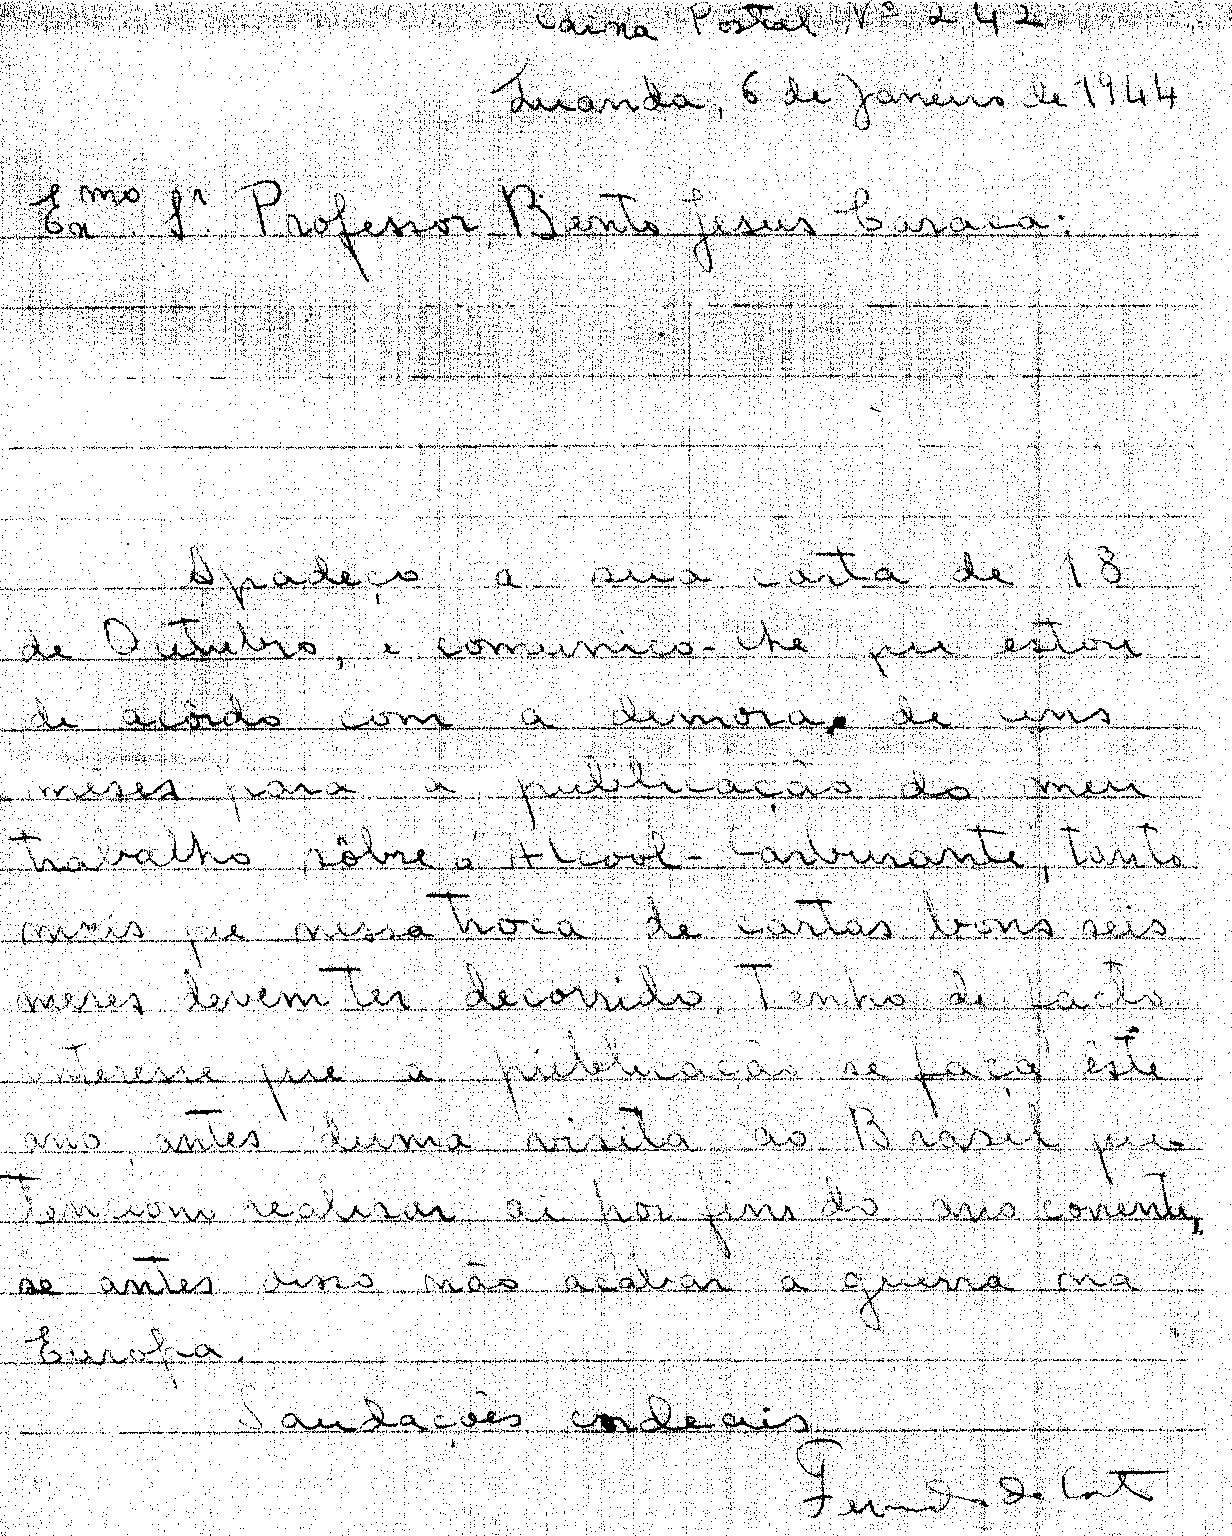 Caixa Postal Nº 242
Luanda, 6 de Janeiro de 1944
Exmo Sr. Professor Bento Jesus Caraça:
Agradeço a sua carta de 18
de Outubro, e comunico-lhe que estou
de acôrdo com a demora de uns
meses para a publicação do meu
trabalho sôbre o Alcool-Carburante, tanto
mais que nessa troca de cartas bons seis
meses devem ter decorrido. Tenho de facto
interesse que a publicação se faça êste
ano, antes duma visita ao Brasil que
tenciono realisar ai por fins do ano corrente,
se antes disso não acabar a guerra na
Europa.
Saudações cordeais